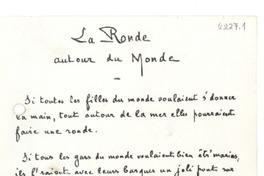 6227.1
La Ronde
autour du Monde
Si toutes les filles du monde voulaient s'donner
la main, tout autour de la mer elles pourraient
faire une ronde.
Si tous les gars du monde voulaient bien êtr' marins,
ils f'raient avec leurs barques un joli pont sur